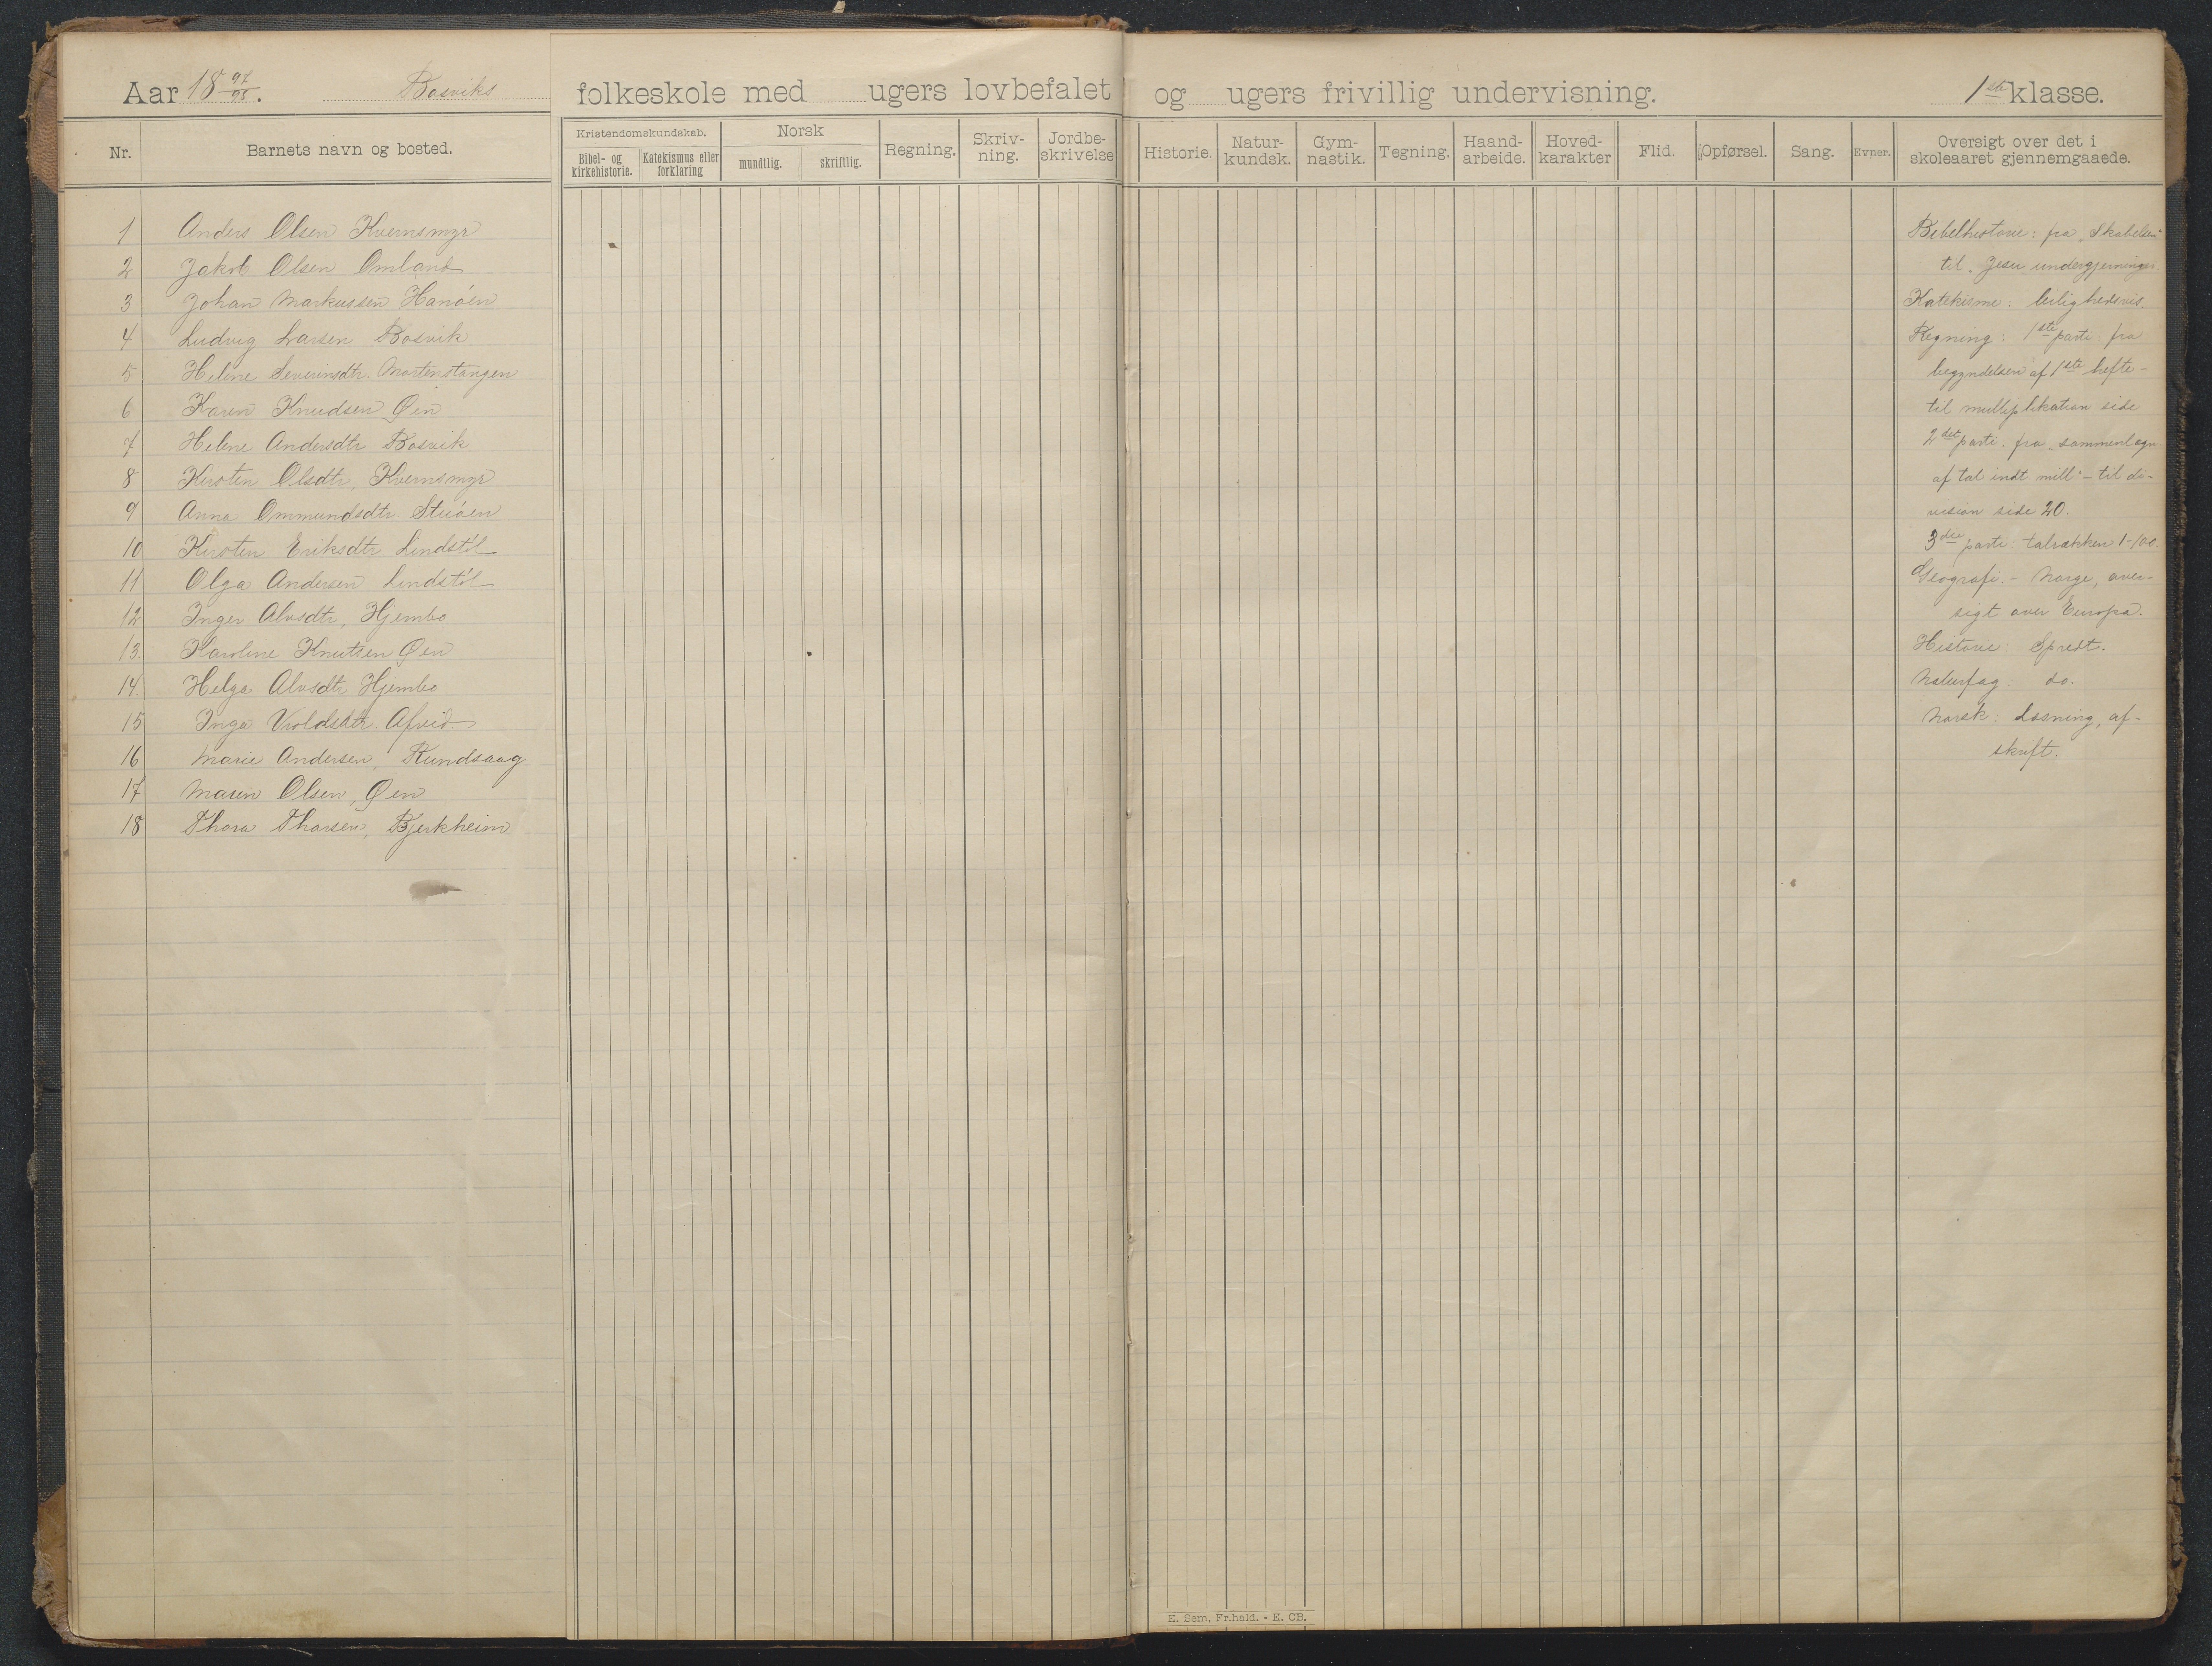 Aar 18 97/98. Bosviks folkeskole med ugers lovbefalet og ugers frivillig undervisning. 1ste klasse.
Nr.
Barnets navn og bosted.
Kristendomskundskab.
Bibel- og kirkehistorie.
Katekismus eller forklaring
Norsk
mundtlig.
skriftlig.
Regning.
Skriv-ning.
Jordbe-skrivelse
Historie.
Natur-kundsk.
Gym-nastik.
Tegning.
Haand-arbeide.
Hoved-karakter
Flid.
Opførsel.
Sang.
Evner.
Oversigt over det i skoleaaret gjennemgaaede.
1 Anders Olsen Kvernsmyr
2 Jakob Olsen Omland
3 Johan Markussen Hanöen
4 Ludvig Larsen Bosvik
5 Helene Severinsdtr. Mortenstangen
6 Karen Knudsen Øen
7 Helene Andersdtr Bosvik
8 Kirsten Olsdtr, Kvernsmyr
9 Anna Ommundsdtr. Stuöen
10 Kirsten Eriksdtr Lindstöl
11 Olga Andersen Lindstöl
12 Inger Alvsdtr, Hjembo
13. Karoline Knutsen Øen
14 Helga Alvsdtr Hjembo
15 Inga Vroldsdtr.
16 Marie Andersen, Rundsaag
17 Maren Olsen, Øen
18 Thora Tharsen, Bjerkheim
Bibelhistorie: fra „Skabelsen"
til „Jesu undergjerninger
Katekisme: leilighedsvis
Regning: 1ste parti: fra
begyndelsen af 1ste hefte -
til multiplikation side
2det parti: fra „sammenlægn.
af tal indt. mill" - til di-
vision side 20.
3die parti: talrækken 1-100.
Geografi. - Norge, over-
sigt over Europa.
Historie: Spredt.
Naturfag: do.
Norsk: Læsning, af-
skrift.
E. Sem, Fr.hald. - E. CB.